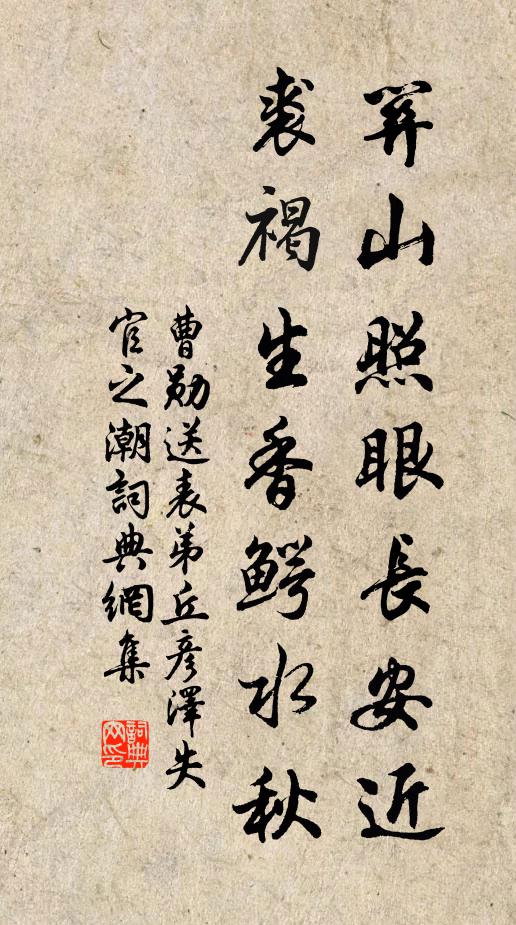 笄山照眼長安近
裘褐生香鰐水秋
曹勛送表弟丘彥澤失
官之潮詞典網集
詞典
网印